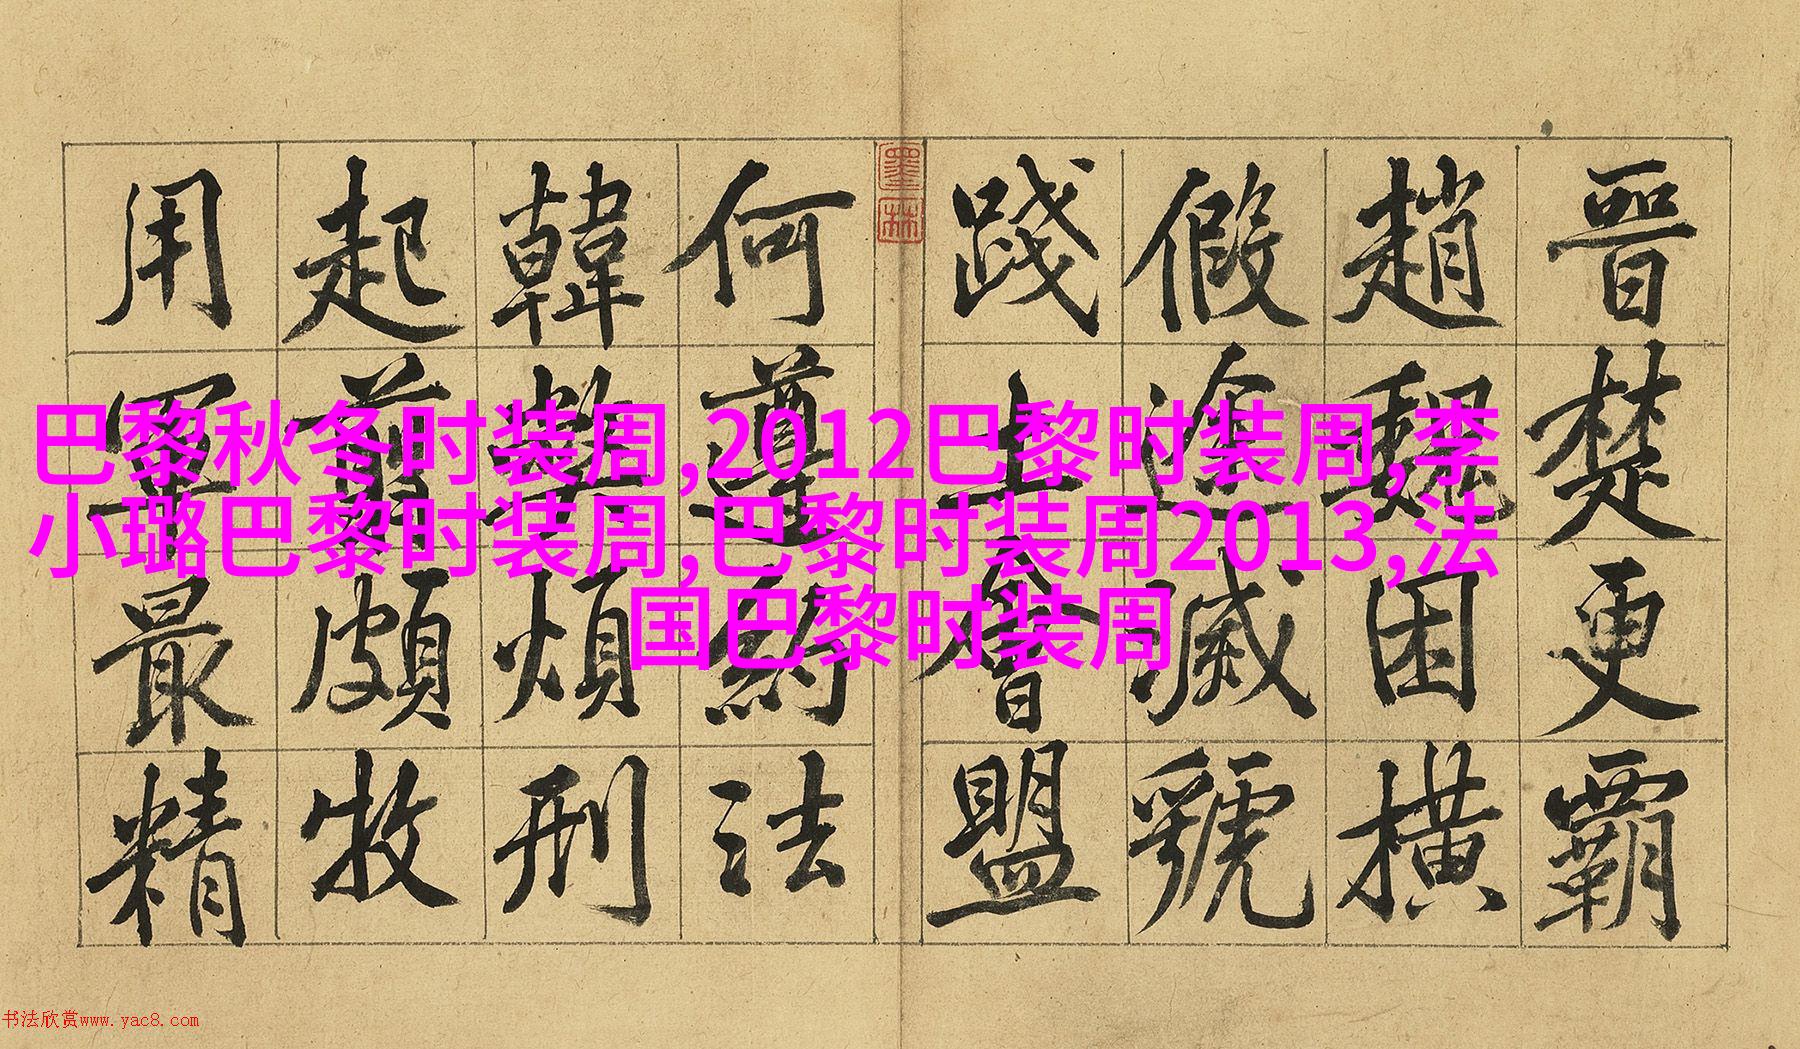 晉楚更霸
趙魏困橫
假途滅虢
踐土會盟
墨林
何遵約法
韓弊煩刑
起翦頗牧
用軍最精
巴黎秋冬时装周,2012巴黎时装周,李
小璐巴黎时装周,巴黎时装周2013,法
国巴黎时装周
书法欣赏www.yac8.com